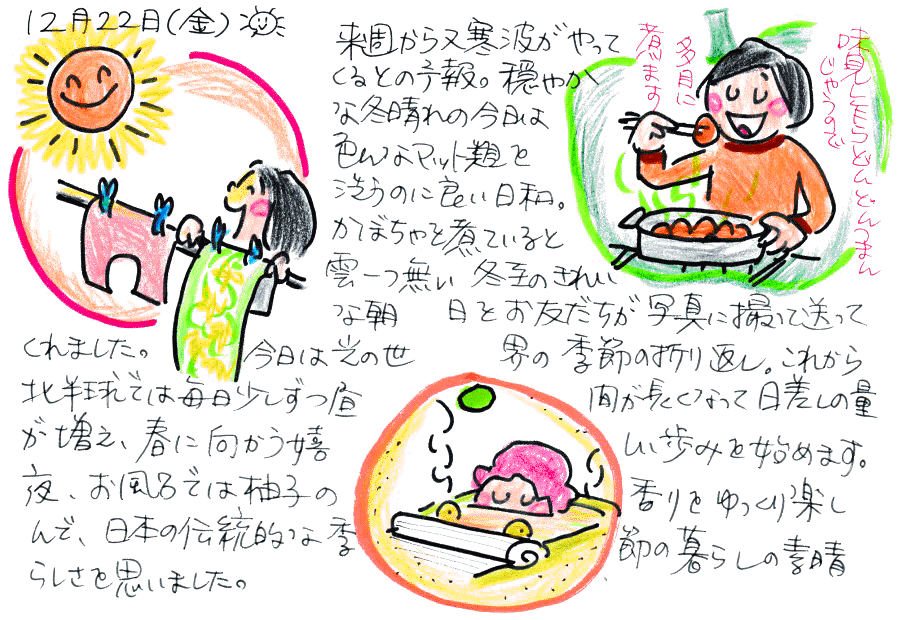 12月22日(金)
来週から又寒波がやって
くるとの予報。穏やか
な冬晴れの今日は
色んなマット類を
洗うのに良い日和。
かぼちゃを煮ていると
雲一つ無い 冬至のきれい
な朝 日をお友だちが 写真に撮って送って
くれました。 今日は光の世 界の 季節の折り返し。これから
北半球では毎日少しずつ昼 間が長くなって日差しの量
が増え、春に向かう嬉 しい歩みを始めます。
夜、お風呂では柚子の 香りをゆっくり楽し
んで、日本の伝統的な季 節の暮らしの素晴
らしさを思いました。
味見してもらどんどんつまん
じゃうので
多目に
煮ます